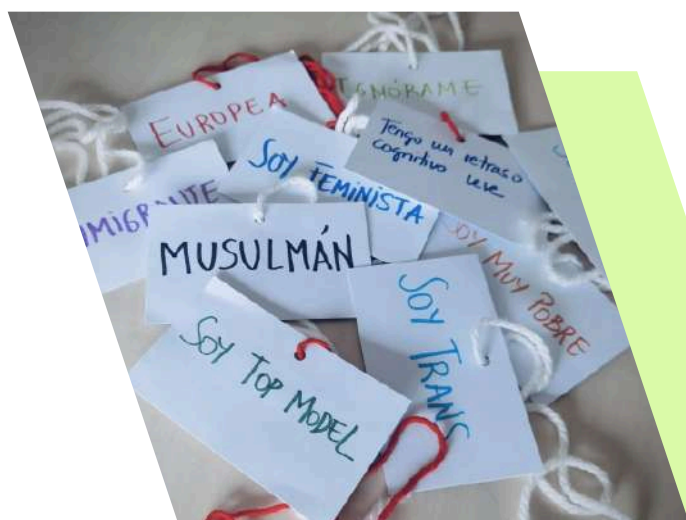 EUROPEA
IGNÓRAME
Tengo un retraso
cognitivo leve
SOY FEMINISTA
INMIGRANTE
MUSULMÁN
SOY MUY POBRE
SOY TRANS
SOY TOP MODEL